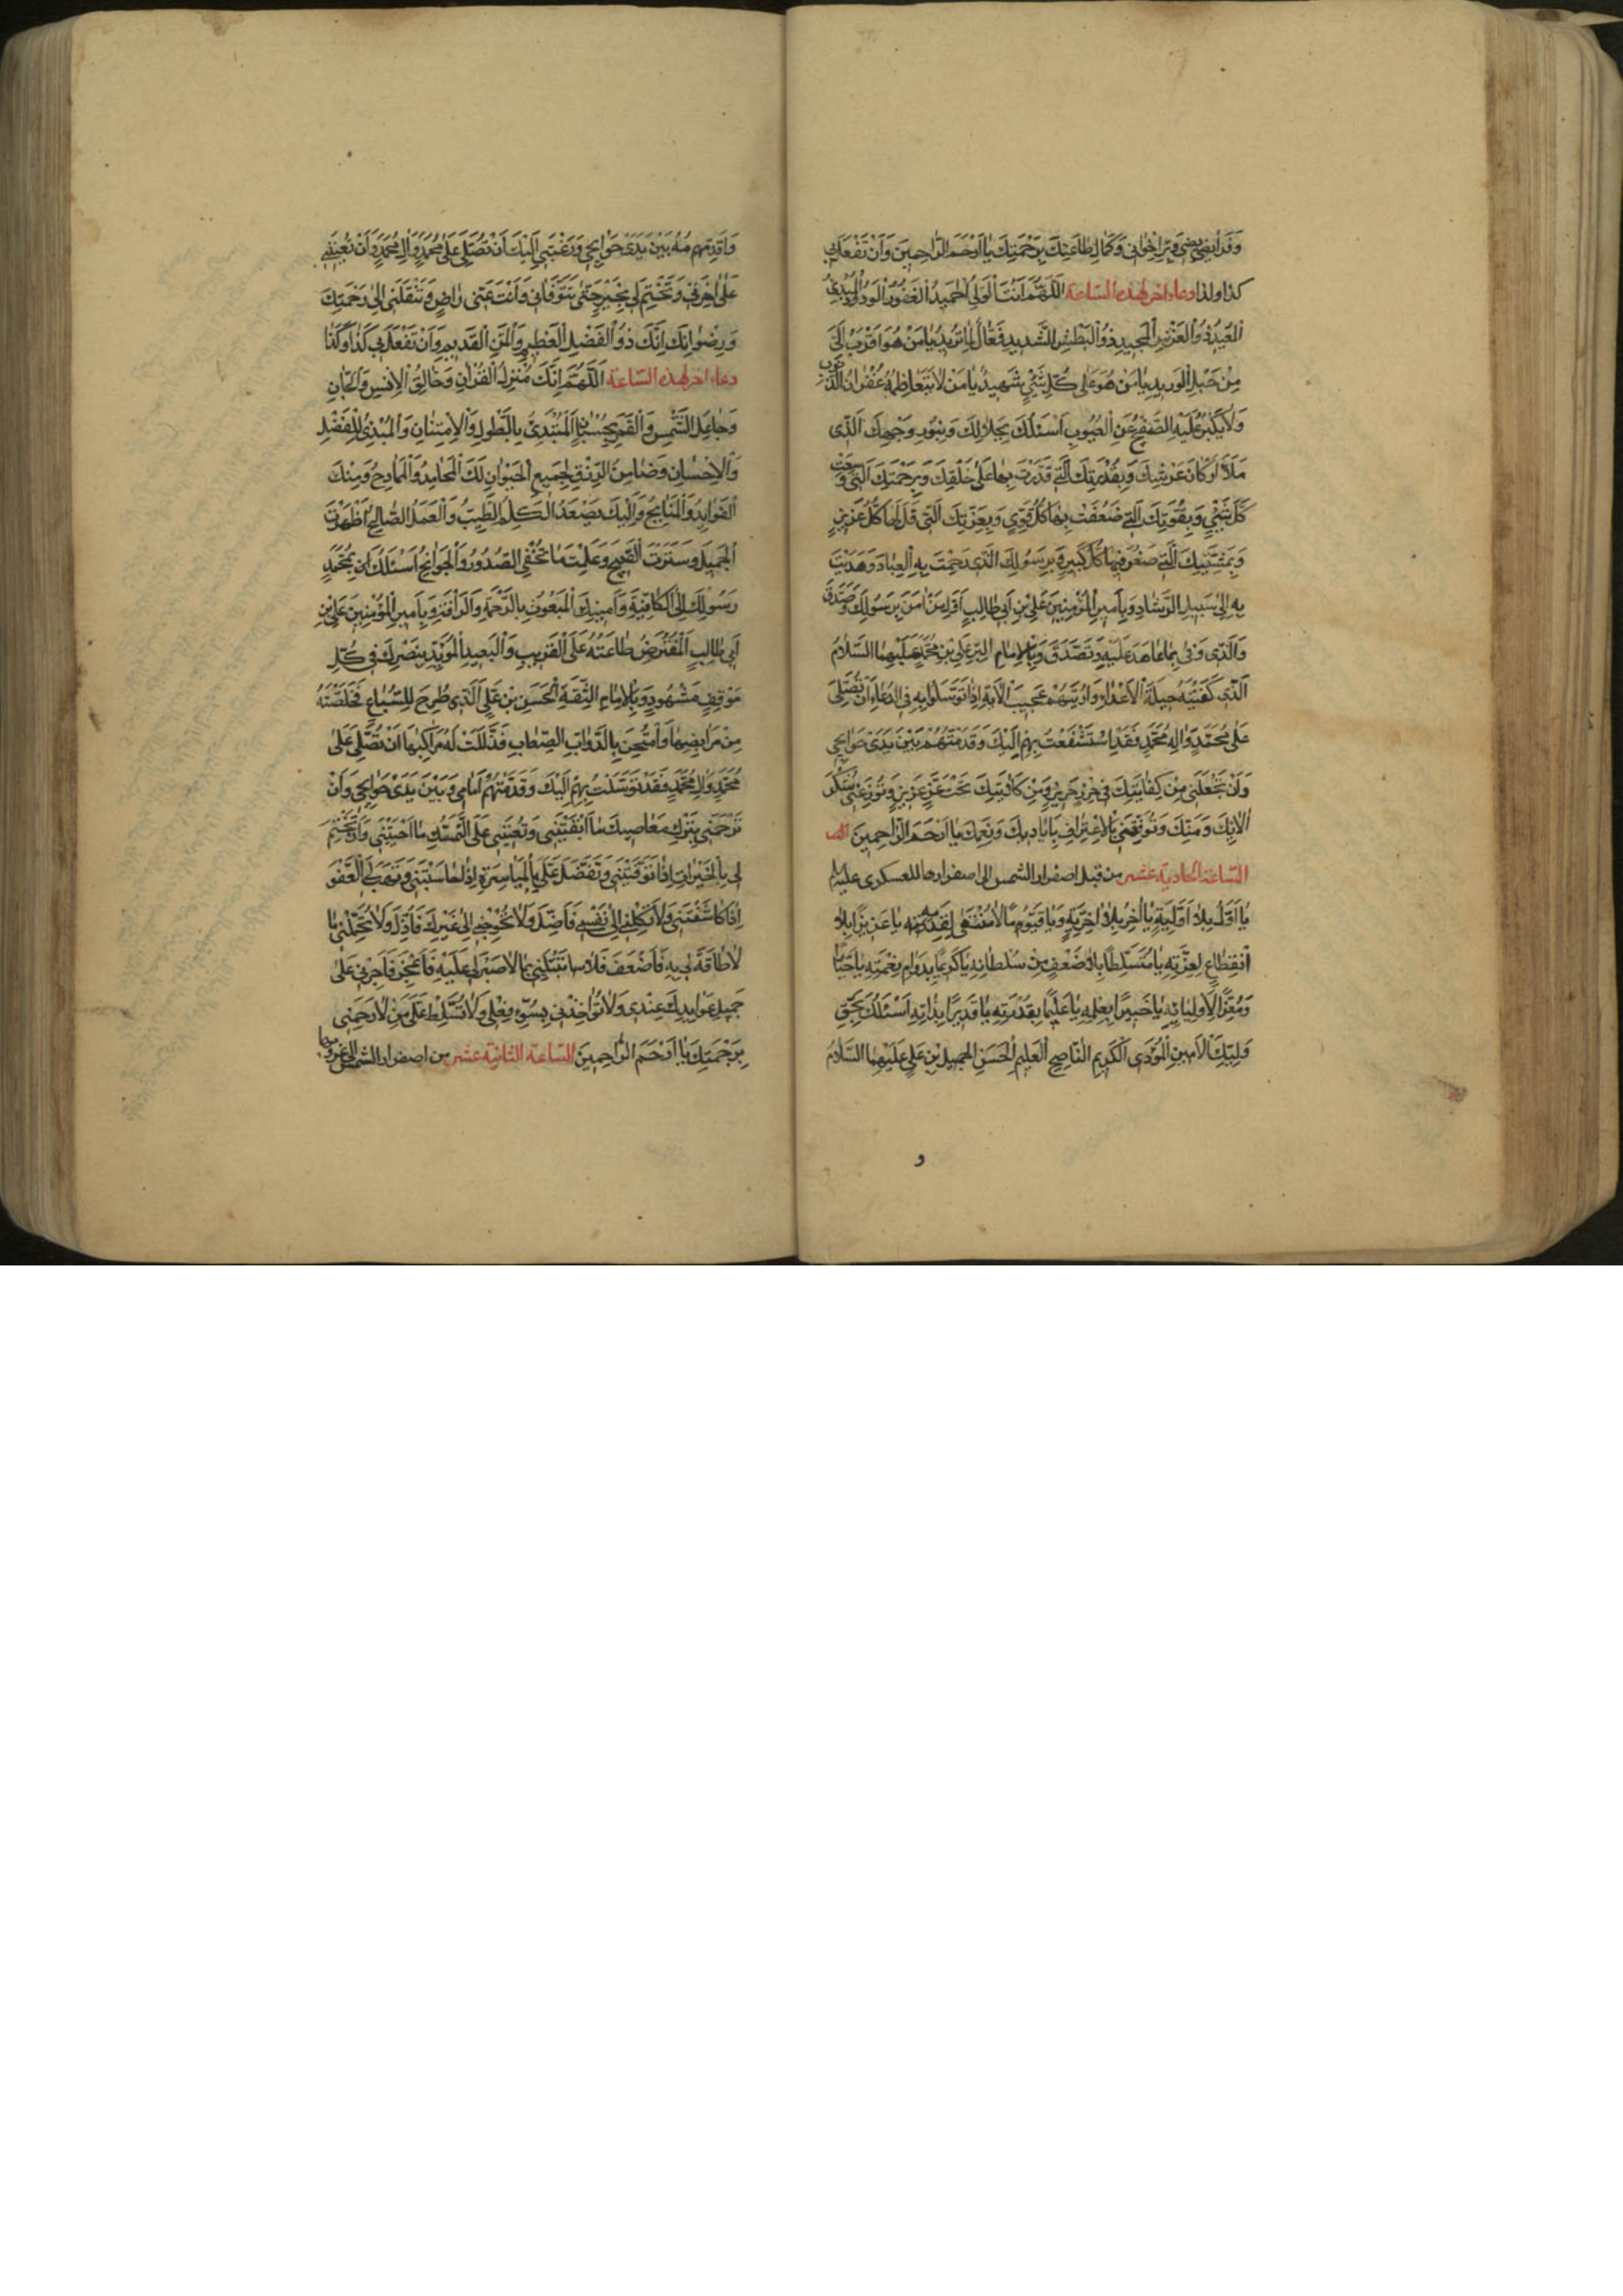 وَفَرَائِضِي وَبِرِّ اِخْوَانِي وَكَمَالِ طَاعَتِكَ بِرَحْمَتِكَ يَا اَرْحَمَ الرَّاحِمِينَ وَاَنْ تَفْعَلَ بِي
كذا وكذا دعاء اخر لهذه الساعة اَللّٰهُمَّ اَنْتَ الْوَلِيُّ الْحَمِيدُ الْغَفُورُ الْوَدُودُ الْمُبْدِئُ
الْمُعِيدُ ذُو الْعَرْشِ الْمَجِيدِ ذُو الْبَطْشِ الشَّدِيدِ فَعَّالٌ لِمَا تُرِيدُ يَا مَنْ هُوَ اَقْرَبُ اِلَيَّ
مِنْ حَبْلِ الْوَرِيدِ يَا مَنْ هُوَ عَلٰى كُلِّ شَيْءٍ شَهِيدٌ يَا مَنْ لَا يَتَعَاظَمُهُ غُفْرَانُ الذُّنُوبِ
وَلَا يَكْبُرُ عَلَيْهِ الصَّفْحُ عَنِ الْعُيُوبِ اَسْئَلُكَ بِجَلَالِكَ وَبِنُورِ وَجْهِكَ الَّذِي
مَلَأَ اَرْكَانَ عَرْشِكَ وَبِقُدْرَتِكَ الَّتِي قَدَرْتَ بِهَا عَلٰى خَلْقِكَ وَبِرَحْمَتِكَ الَّتِي وَسِعَتْ
كُلَّ شَيْءٍ وَبِقُوَّتِكَ الَّتِي ضَعُفَتْ بِهَا كُلُّ قَوِيٍّ وَبِعِزَّتِكَ الَّتِي ذَلَّ لَهَا كُلُّ عَزِيزٍ
وَبِمَشِيَّتِكَ الَّتِي صَغُرَ فِيهَا كُلُّ كَبِيرٍ وَبِرَسُولِكَ الَّذِي رَحِمْتَ بِهِ الْعِبَادَ وَهَدَيْتَ
بِهِ اِلٰى سَبِيلِ الرَّشَادِ وَبِاَمِيرِ الْمُؤْمِنِينَ عَلِيِّ بْنِ اَبِي طَالِبٍ اَوَّلِ مَنْ اٰمَنَ بِرَسُولِكَ وَصَدَّقَ
وَالَّذِي وَفٰى بِمَا عَاهَدَ عَلَيْهِ وَتَصَدَّقَ وَبِالْاِمَامِ الْبَرِّ عَلِيِّ بْنِ مُحَمَّدٍ عَلَيْهِمَا السَّلَامُ
الَّذِي كَفَيْتَهُ حِيلَةَ الْاَعْدَاءِ وَاَرَيْتَهُمْ عَجِيبَ الْاٰيَةِ اِذَا تَوَسَّلُوا بِهِ فِي الدُّعَاءِ اَنْ تُصَلِّيَ
عَلٰى مُحَمَّدٍ وَاٰلِ مُحَمَّدٍ فَقَدِ اسْتَشْفَعْتُ بِهِمْ اِلَيْكَ وَقَدَّمْتُهُمْ بَيْنَ يَدَيْ حَوَايِجِي
وَاَنْ تَجْعَلَنِي مِنْ كِفَايَتِكَ فِي حِرْزٍ حَرِيزٍ وَمِنْ كَلَايَتِكَ تَحْتَ عِزٍّ عَزِيزٍ وَتُوزِعَنِي شُكْرَ
اٰلَائِكَ وَمِنَنِكَ وَتُوَفِّقَنِي بِالْاِعْتِرَافِ بِاَيَادِيكَ وَنِعَمِكَ يَا اَرْحَمَ الرَّاحِمِينَ
الساعة الحادية عشر من قبل اصفرار الشمس الى اصفرارها للعسكرى عليه السلام
يَا اَوَّلُ بِلَا اَوَّلِيَّةٍ يَا اٰخِرُ بِلَا اٰخِرِيَّةٍ وَيَا قَيُّومًا لَا مُنْتَهٰى لِقِدَمِهِ يَا عَزِيزًا بِلَا
انْقِطَاعٍ لِعِزَّتِهِ يَا مُتَسَلِّطًا بِلَا ضَعْفٍ مِنْ سُلْطَانِهِ يَا كَرِيمًا بِدَوَامِ نِعْمَتِهِ يَا جَبَّارًا
وَمُعِزًّا لِاَوْلِيَائِهِ يَا خَبِيرًا بِعِلْمِهِ يَا عَلِيمًا بِقُدْرَتِهِ يَا قَدِيرًا بِذَاتِهِ اَسْئَلُكَ بِحَقِّ
وَلِيِّكَ الْاَمِينِ الْمُؤَدِّي الْكَرِيمِ النَّاصِحِ الْعَلِيمِ الْحَسَنِ الْجَمِيلِ بْنِ عَلِيٍّ عَلَيْهِمَا السَّلَامُ
و
وَاُقَدِّمُهُ بَيْنَ يَدَيْ حَوَايِجِي وَرَغْبَتِي اِلَيْكَ اَنْ تُصَلِّيَ عَلٰى مُحَمَّدٍ وَاٰلِ مُحَمَّدٍ وَاَنْ تُعِينَنِي
عَلٰى اٰخِرَتِي وَتَخْتِمَ لِي بِخَيْرٍ حَتّٰى تَتَوَفَّانِي وَاَنْتَ عَنِّي رَاضٍ وَتَنْقُلَنِي اِلٰى رَحْمَتِكَ
وَرِضْوَانِكَ اِنَّكَ ذُو الْفَضْلِ الْعَظِيمِ وَالْمَنِّ الْقَدِيمِ وَاَنْ تَفْعَلَ بِي كَذَا وَكَذَا
دعاء اخر لهذه الساعة اَللّٰهُمَّ اِنَّكَ مُنْزِلُ الْقُرْاٰنِ وَخَالِقُ الْاِنْسِ وَالْجَانِّ
وَجَاعِلُ الشَّمْسِ وَالْقَمَرِ بِحُسْبَانٍ الْمُبْتَدِئُ بِالطَّوْلِ وَالْاِمْتِنَانِ وَالْمُبْدِئُ لِلْفَضْلِ
وَالْاِحْسَانِ وَضَامِنُ الرِّزْقِ لِجَمِيعِ الْحَيَوَانِ لَكَ الْمَحَامِدُ وَالْمَمَادِحُ وَمِنْكَ
الْفَوَايِدُ وَالْمَنَايِحُ وَاِلَيْكَ يَصْعَدُ الْكَلِمُ الطَّيِّبُ وَالْعَمَلُ الصَّالِحُ اَظْهَرْتَ
الْجَمِيلَ وَسَتَرْتَ الْقَبِيحَ وَعَلِمْتَ مَا تُخْفِي الصُّدُورُ وَالْجَوَانِحُ اَسْئَلُكَ بِمُحَمَّدٍ
رَسُولِكَ اِلَى الْكَافَّةِ وَاَمِينِكَ الْمَبْعُوثِ بِالرَّحْمَةِ وَالرَّأْفَةِ وَبِاَمِيرِ الْمُؤْمِنِينَ عَلِيِّ بْنِ
اَبِي طَالِبٍ الْمُفْتَرَضِ طَاعَتُهُ عَلَى الْقَرِيبِ وَالْبَعِيدِ الْمُؤَيَّدِ بِنَصْرِكَ فِي كُلِّ
مَوْقِفٍ مَشْهُودٍ وَبِالْاِمَامِ الثِّقَةِ الْحَسَنِ بْنِ عَلِيٍّ الَّذِي طُرِحَ لِلسِّبَاعِ فَخَلَّصْتَهُ
مِنْ مَرَابِضِهَا وَامْتُحِنَ بِالدَّوَابِّ الصِّعَابِ فَذَلَّلْتَ لَهُ مَرَاكِبَهَا اَنْ تُصَلِّيَ عَلٰى
مُحَمَّدٍ وَاٰلِ مُحَمَّدٍ فَقَدْ تَوَسَّلْتُ بِهِمْ اِلَيْكَ وَقَدَّمْتُهُمْ اَمَامِي وَبَيْنَ يَدَيْ حَوَايِجِي وَاَنْ
تَرْحَمَنِي بِتَرْكِ مَعَاصِيكَ مَا اَبْقَيْتَنِي وَتُعِينَنِي عَلَى التَّمَسُّكِ مَا اَحْيَيْتَنِي وَاَنْ تَخْتِمَ
لِي بِالْخَيْرَاتِ اِذَا تَوَفَّيْتَنِي وَتَفَضَّلَ عَلَيَّ بِالْمُيَاسَرَةِ اِذَا حَاسَبْتَنِي وَتَهَبَ لِي الْعَفْوَ
اِذَا كَاشَفْتَنِي وَلَا تَكِلْنِي اِلٰى نَفْسِي فَاَضِلَّ وَلَا تُحْوِجْنِي اِلٰى غَيْرِكَ فَاَذِلَّ وَلَا تُحَمِّلْنِي مَا
لَا طَاقَةَ لِي بِهِ فَاَضْعُفَ وَلَا تَبْتَلِيَنِّي بِمَا لَا صَبْرَ لِي عَلَيْهِ فَاَعْجِزَ فَاَجْرِنِي عَلٰى
جَمِيلِ عَوَايِدِكَ عِنْدِي وَلَا تُؤَاخِذْنِي بِسُوءِ فِعْلِي وَلَا تُسَلِّطْ عَلَيَّ مَنْ لَا يَرْحَمُنِي
بِرَحْمَتِكَ يَا اَرْحَمَ الرَّاحِمِينَ الساعة الثانية عشر من اصفرار الشمس الى غروبها